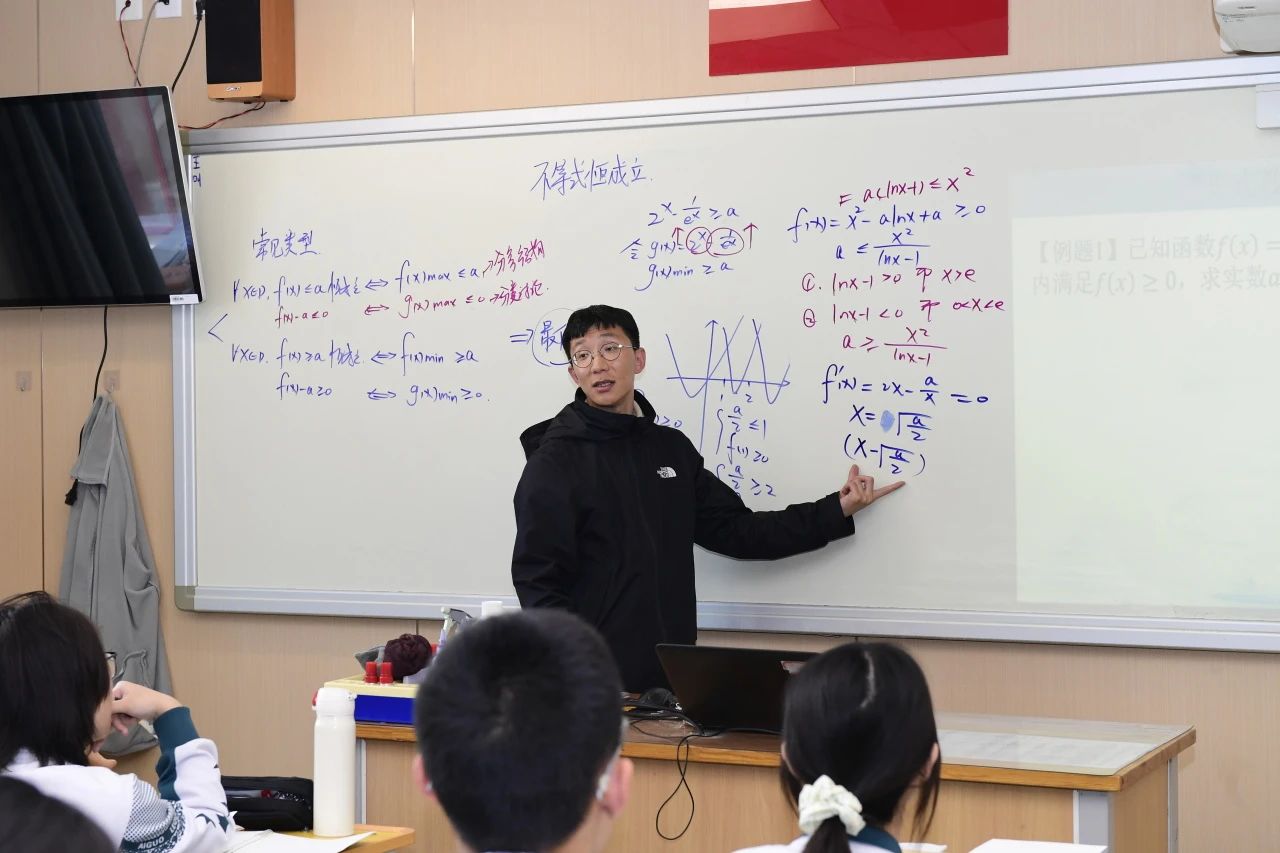 不等式恒成立.
常见类型
∀x∈D. f(x)≤a 恒成立 ⇔ f(x)max≤a
f(x)-a≤0 ⇔ g(x)max≤0
∀x∈D. f(x)≥a 恒成立 ⇔ f(x)min≥a
f(x)-a≥0 ⇔ g(x)min≥0.
⇒ 最
2^x - 1/e^x ≥ a
令 g(x) = 2^x - 1/e^x
g(x)min ≥ a
1 2
a/2 ≤ 1
f(1)≥0
a/2 ≥ 2
a(lnx-1) ≤ x^2
f(x) = x^2 - alnx + a ≥ 0
a ≤ x^2/(lnx-1)
①. lnx-1>0 即 x>e
② lnx-1<0 即 0<x<e
a ≥ x^2/(lnx-1)
f'(x) = 2x - a/x = 0
x = √(a/2)
(x-√(a/2))
【例题1】已知函数f(x) =
内满足f(x) ≥ 0，求实数a
THE NORTH FACE
AIGUO